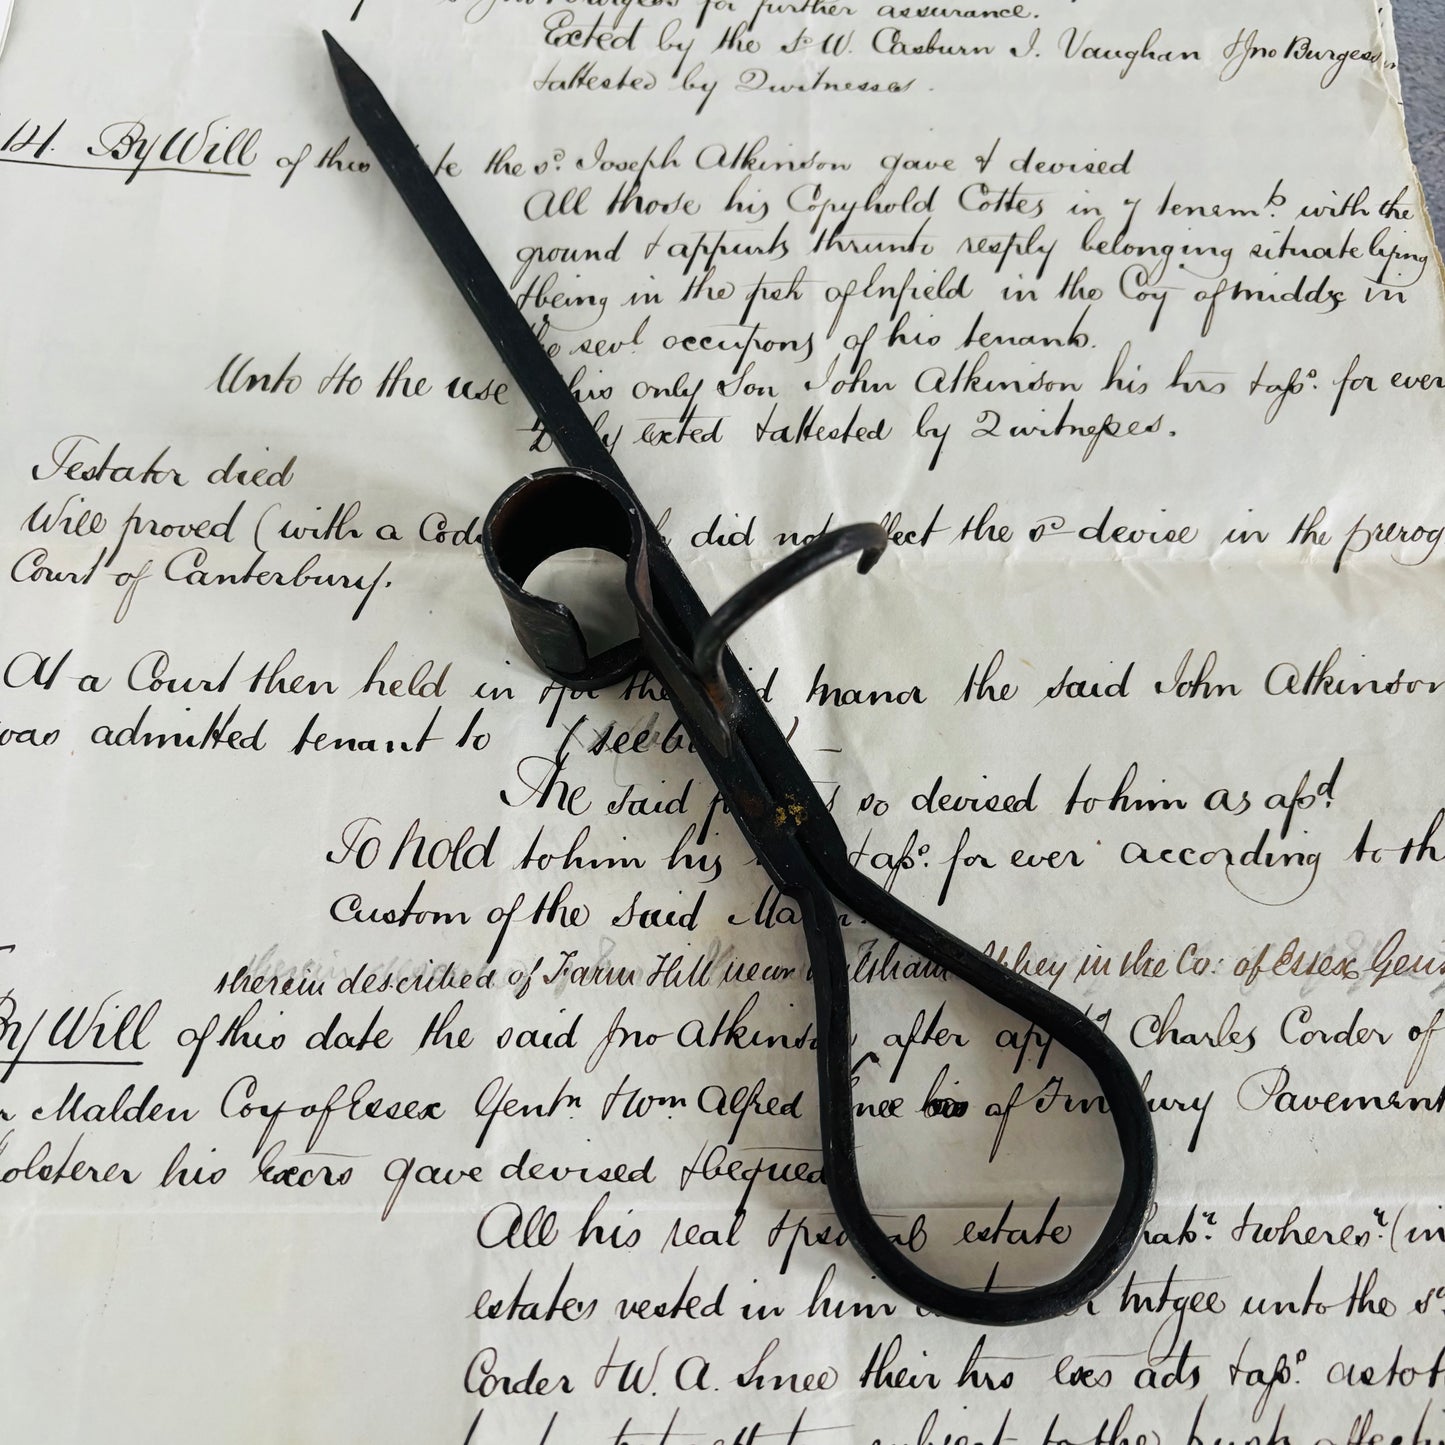 for further assurance.
Exted by the sd W. Casburn J. Vaughan & Jno Burgess
& attested by 2 witnesses.
14. By Will of this the sd. Joseph Atkinson gave & devised
All those his Copyhold Cottes in 7 tenemts. with the
ground & appurts thrunto resply belonging situate lying
& being in the psh of Enfield in the Coy of Middx in
sevl. occupons of his tenants.
Unto & to the use his only Son John Atkinson his hrs & asss. for ever
exted & attested by 2 witnesses.
Testator died
Will proved (with a did not the sd devise in the prerog
Court of Canterbury.
At a Court then held in the manor the said John Atkinson
was admitted tenant to (see
The said so devised to him as afsd.
To hold to him his & asss. for ever according to th
custom of the said
therein described of Farm Hill near Abbey in the Co: of Essex Gen
By Will of this date the said Jno Atkinson after Charles Corder of
Malden Coy of Essex Gentn & Wm Alfred of Pavement
his Exors gave devised &
All his real & estate & wheresr. (in
estates vested in him trtee unto the sd
Corder & W. A. Smee their hrs exs ads & asss. as to
subject to the